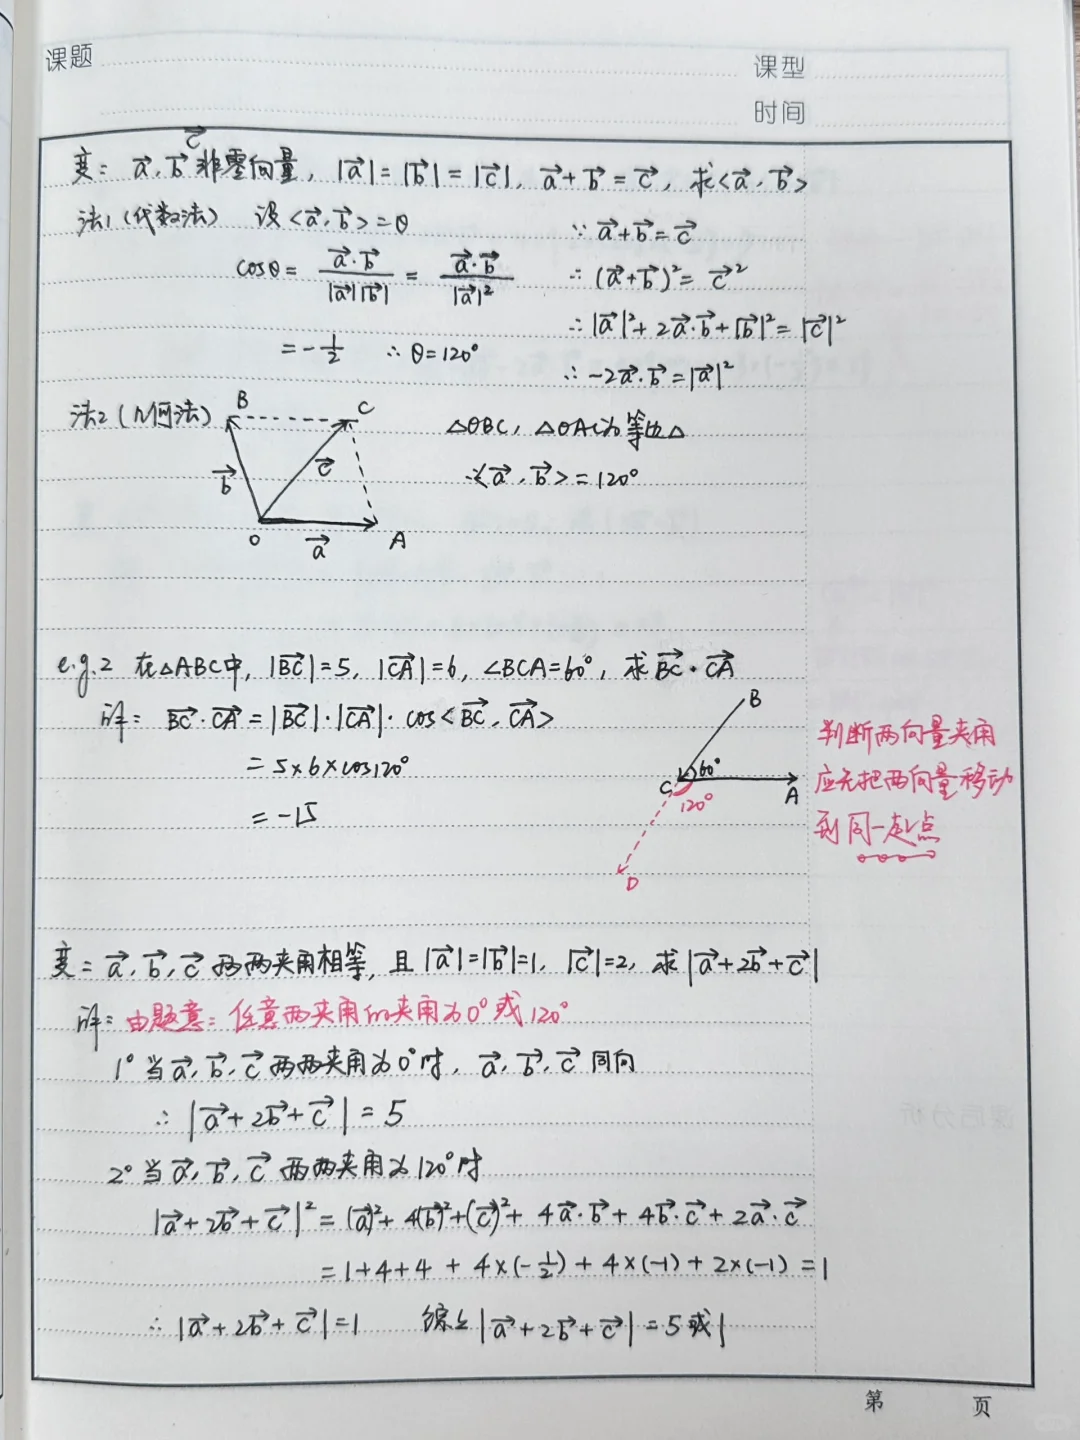 课题
课型
时间
变: a⃗, b⃗, c⃗ 非零向量, |a⃗|=|b⃗|=|c⃗|, a⃗+b⃗=c⃗, 求<a⃗, b⃗>
法1(代数法) 设<a⃗, b⃗>=θ ∵ a⃗+b⃗=c⃗
cosθ = a⃗·b⃗/|a⃗||b⃗| = a⃗·b⃗/|a⃗|² ∴ (a⃗+b⃗)²= c⃗²
∴ |a⃗|²+2a⃗·b⃗+|b⃗|²=|c⃗|²
=-1/2 ∴ θ=120°
∴ -2a⃗·b⃗=|a⃗|²
法2(几何法) B C △OBC, △OAC为等边△
b⃗ c⃗ ∴<a⃗, b⃗>=120°
O a⃗ A
e.g.2 在△ABC中, |BC⃗|=5, |CA⃗|=6, ∠BCA=60°, 求BC⃗·CA⃗
解: BC⃗·CA⃗=|BC⃗|·|CA⃗|·cos<BC⃗, CA⃗>
=5×6×cos120°
=-15
B
60°
C 120° A
D
判断两向量夹角
应先把两向量移动
到同一起点
变: a⃗, b⃗, c⃗ 两两夹角相等, 且|a⃗|=|b⃗|=1, |c⃗|=2, 求|a⃗+2b⃗+c⃗|
解: 由题意: 任意两夹角的夹角为0°或120°
1° 当a⃗, b⃗, c⃗ 两两夹角为0°时, a⃗, b⃗, c⃗ 同向
∴ |a⃗+2b⃗+c⃗|=5
2° 当a⃗, b⃗, c⃗ 两两夹角为120°时
|a⃗+2b⃗+c⃗|²=(a⃗)²+4(b⃗)²+(c⃗)²+4a⃗·b⃗+4b⃗·c⃗+2a⃗·c⃗
=1+4+4+4×(-1/2)+4×(-1)+2×(-1)=1
∴ |a⃗+2b⃗+c⃗|=1 综上|a⃗+2b⃗+c⃗|=5或1
第 页